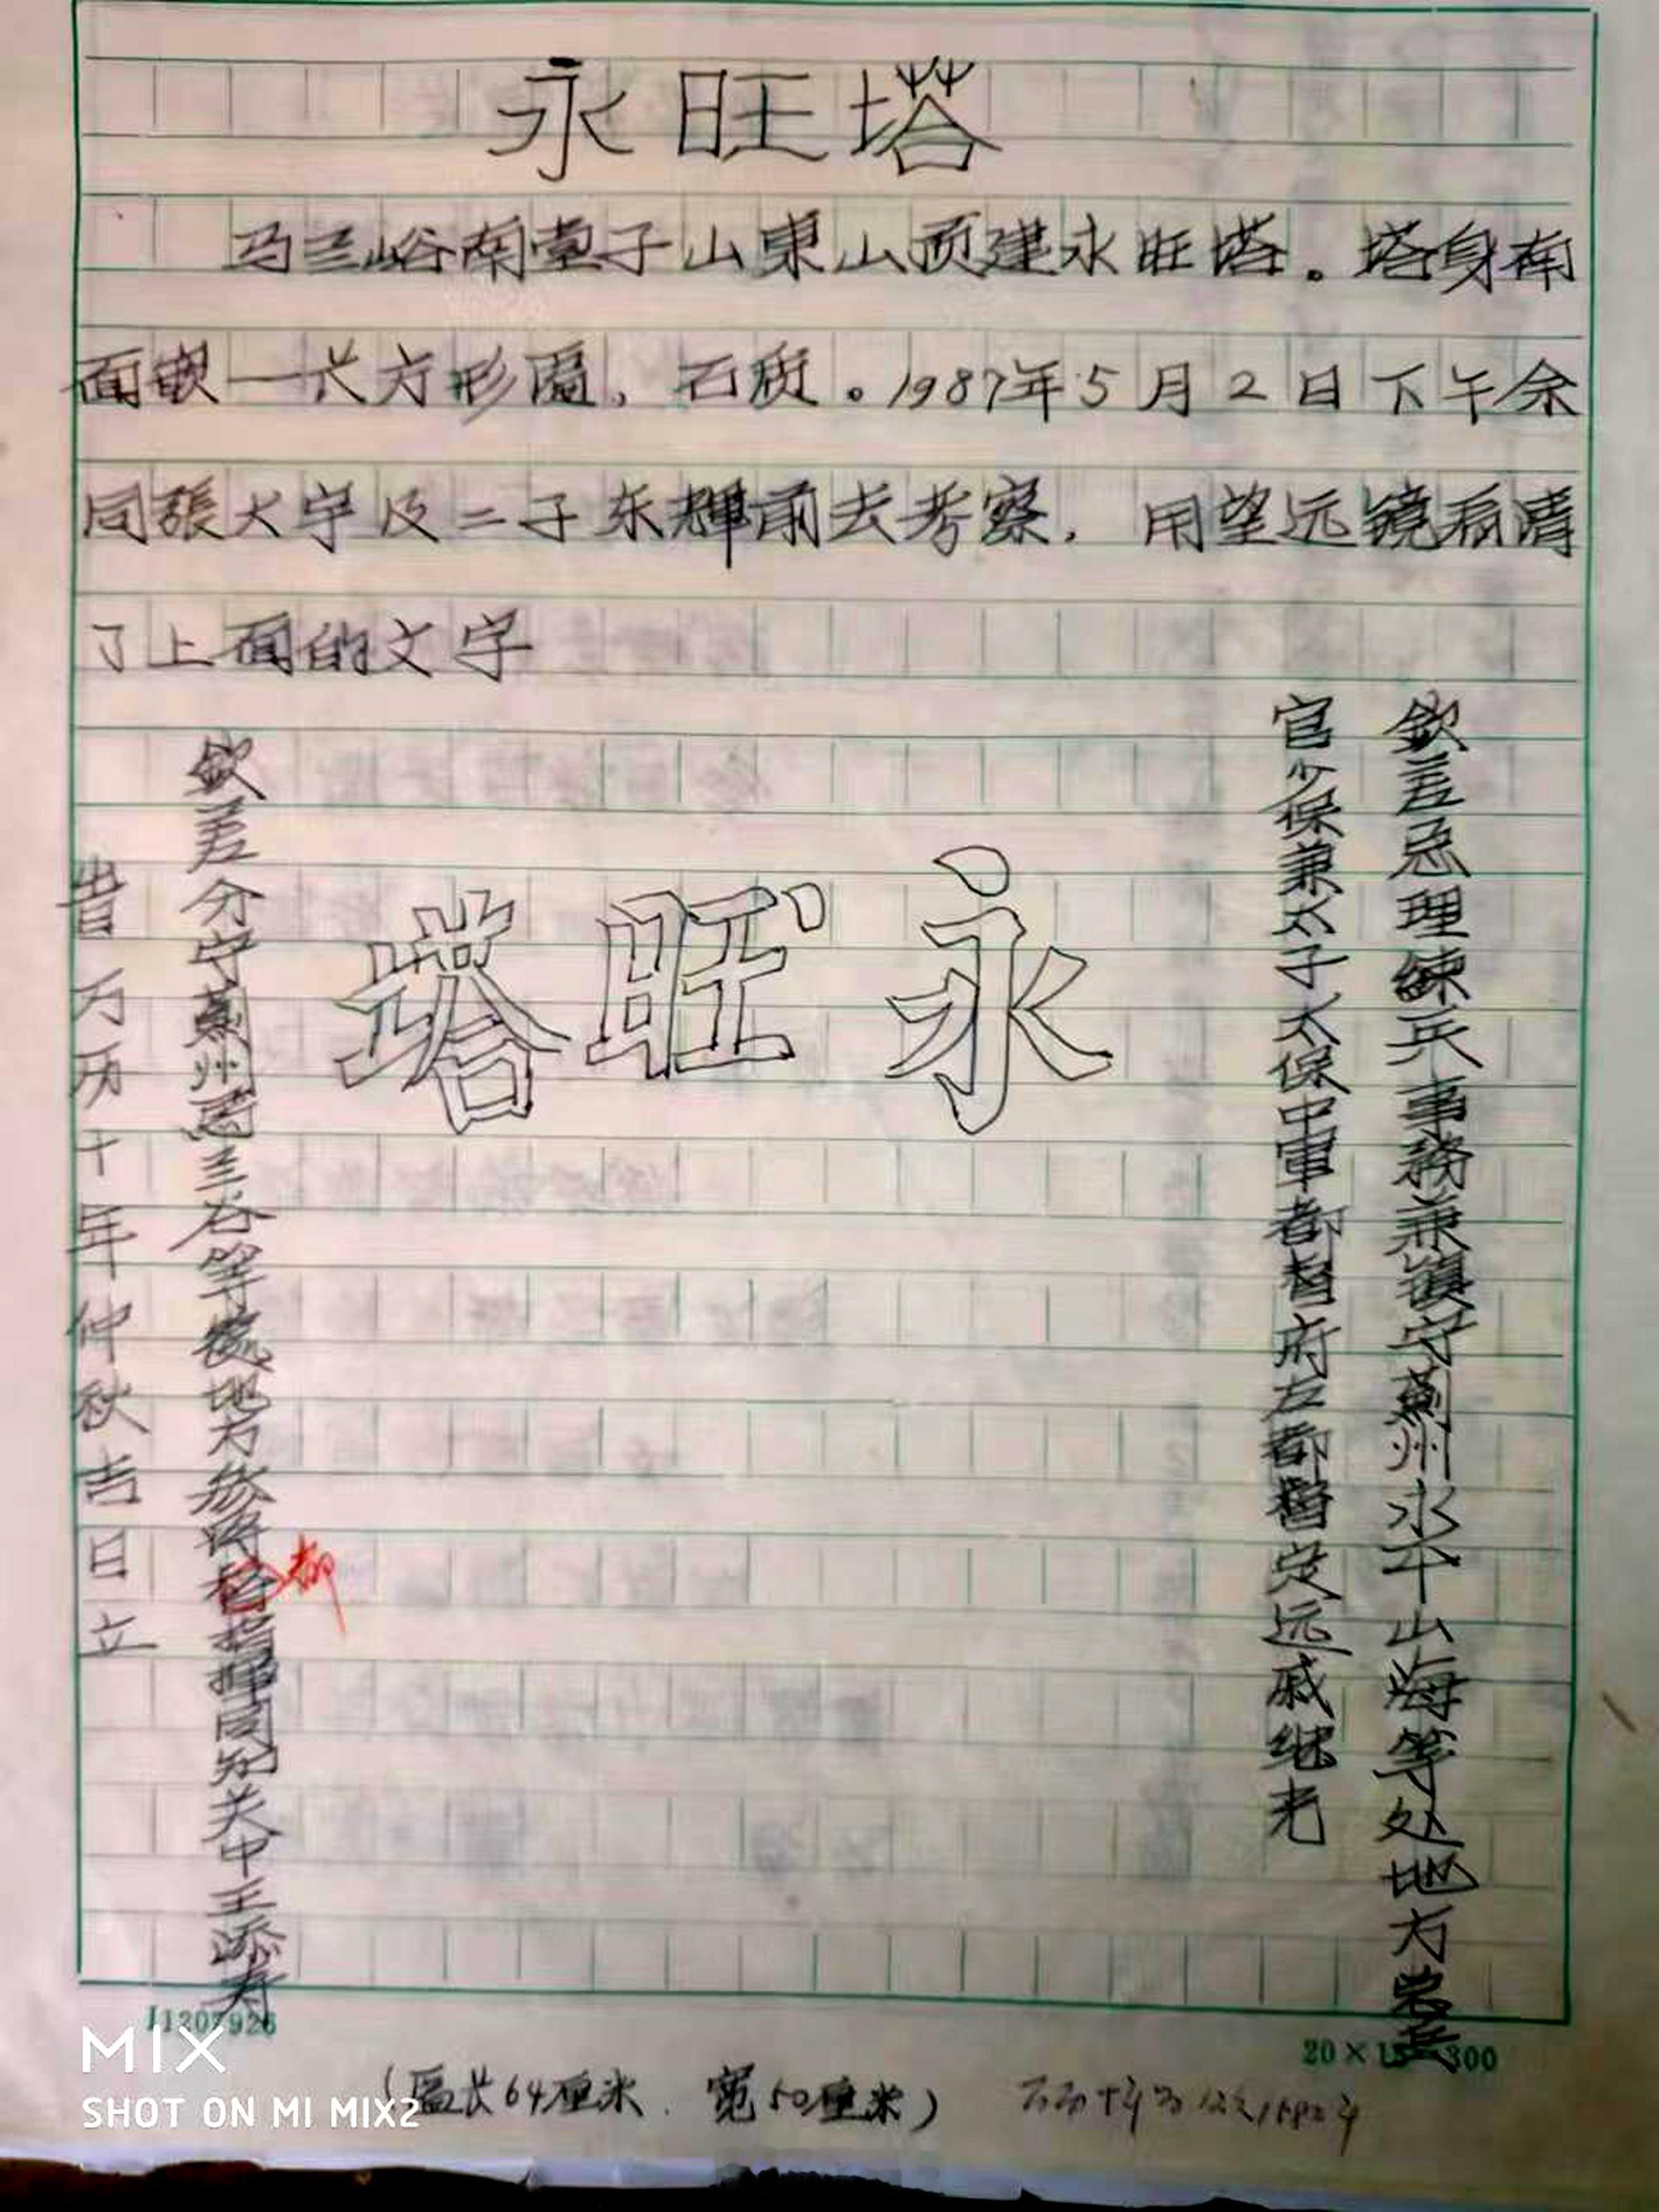 永旺塔
马兰峪南堂子山東山顶建永旺塔。塔身南
面嵌一长方形匾，石质。1987年5月2日下午余
同張大宇及二子东輝前去考察，用望远镜看清
了上面的文字
欽差总理練兵事務兼鎮守薊州永平山海等处地方总兵
官少保兼太子太保中軍都督府左都督定远戚继光
永旺塔
欽差分守薊州馬兰谷等處地方叅将
都
指揮同知关中王添寿
昔万历十年仲秋吉日立
11207926
20×15=300
(匾长64厘米．宽50厘米)
万历十年为公元1582年
MIX
SHOT ON MI MIX2